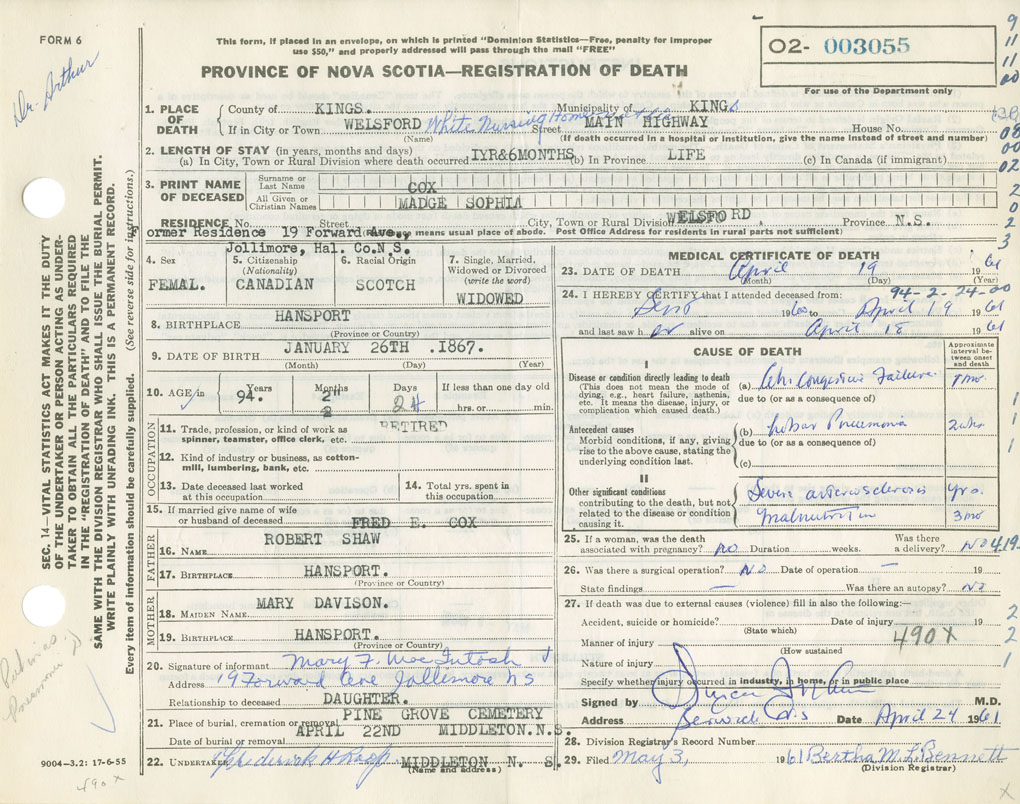 FORM 6
Dr. Arthur
This form, if placed in an envelope, on which is printed "Dominion Statistics—Free, penalty for improper
use $50," and properly addressed will pass through the mail "FREE"
PROVINCE OF NOVA SCOTIA—REGISTRATION OF DEATH
02- 003055
For use of the Department only
9
11
11
00
08
00
02
2
0
2
3
1. PLACE OF DEATH County of KINGS. Municipality of KINGS
If in City or Town WELSFORD White Nursing Home Street MAIN HIGHWAY House No.
(Name) (If death occurred in a hospital or Institution, give the name instead of street and number)
2. LENGTH OF STAY (in years, months and days)
(a) In City, Town or Rural Division where death occurred 1YR&6MONTHS (b) In Province LIFE (c) In Canada (if immigrant)
3. PRINT NAME OF DECEASED
Surname or Last Name COX
All Given or Christian Names MADGE SOPHIA
RESIDENCE No. Street City, Town or Rural Division WELSFORD Province N.S.
Former Residence 19 Forward Ave., means usual place of abode. Post Office Address for residents in rural parts not sufficient)
Jollimore, Hal. Co.N.S.
4. Sex FEMAL.
5. Citizenship (Nationality) CANADIAN
6. Racial Origin SCOTCH
7. Single, Married, Widowed or Divorced (write the word) WIDOWED
8. BIRTHPLACE HANSPORT
(Province or Country)
9. DATE OF BIRTH JANUARY 26TH .1867.
(Month) (Day) (Year)
10. AGE in Years 94. Months 2 Days 24 If less than one day old
hrs. or min.
OCCUPATION
11. Trade, profession, or kind of work as spinner, teamster, office clerk, etc. RETIRED
12. Kind of industry or business, as cotton-mill, lumbering, bank, etc.
13. Date deceased last worked at this occupation
14. Total yrs. spent in this occupation
15. If married give name of wife or husband of deceased FRED E. COX
FATHER
16. NAME ROBERT SHAW
17. BIRTHPLACE HANSPORT.
(Province or Country)
MOTHER
18. MAIDEN NAME MARY DAVISON.
19. BIRTHPLACE HANSPORT.
(Province or Country)
20. Signature of informant Mary F. MacIntosh
Address 19 Forward Ave Jollemore NS
Relationship to deceased DAUGHTER.
21. Place of burial, cremation or removal PINE GROVE CEMETERY
Date of burial or removal APRIL 22ND MIDDLETON.N.S.
22. UNDERTAKER MIDDLETON N. S.
(Name and address)
MEDICAL CERTIFICATE OF DEATH
23. DATE OF DEATH April 19 1961
(Month) (Day) (Year)
94-2-24-00
24. I HEREBY CERTIFY that I attended deceased from:
Sept 1960 to April 19 1961
and last saw her alive on April 18 1961
CAUSE OF DEATH
Approximate interval between onset and death
I
Disease or condition directly leading to death
(This does not mean the mode of dying, e.g., heart failure, asthenia, etc. It means the disease, injury, or complication which caused death.)
(a) Ch. Congestive Failure 1 mo
due to (or as a consequence of)
Antecedent causes
Morbid conditions, if any, giving rise to the above cause, stating the underlying condition last.
(b) Lobar Pneumonia 2 wks
due to (or as a consequence of)
(c)
II
Other significant conditions contributing to the death, but not related to the disease or condition causing it.
Severe arteriosclerosis yrs.
Malnutrition 3 mo
25. If a woman, was the death associated with pregnancy? No Duration weeks. Was there a delivery? No 419
26. Was there a surgical operation? No Date of operation — 19
State findings — Was there an autopsy? No
27. If death was due to external causes (violence) fill in also the following:—
Accident, suicide or homicide? Date of injury 19
(State which)
Manner of injury 490X
(How sustained
Nature of injury
Specify whether injury occurred in industry, in home, or in public place
Signed by M.D.
Address Berwick N.S Date April 24 1961
28. Division Registrar's Record Number
29. Filed May 3, 1961 Bertha M. F. Bennett
(Division Registrar)
SEC. 14—VITAL STATISTICS ACT MAKES IT THE DUTY
OF THE UNDERTAKER OR PERSON ACTING AS UNDER-
TAKER TO OBTAIN ALL THE PARTICULARS REQUIRED
IN THE "REGISTRATION OF DEATH" AND TO FILE THE
SAME WITH THE DIVISION REGISTRAR WHO SHALL ISSUE THE BURIAL PERMIT.
WRITE PLAINLY WITH UNFADING INK. THIS IS A PERMANENT RECORD.
Every item of information should be carefully supplied. (See reverse side for instructions.)
9004-3.2: 17-6-55
490 X
1
1
1
2
2
1
X